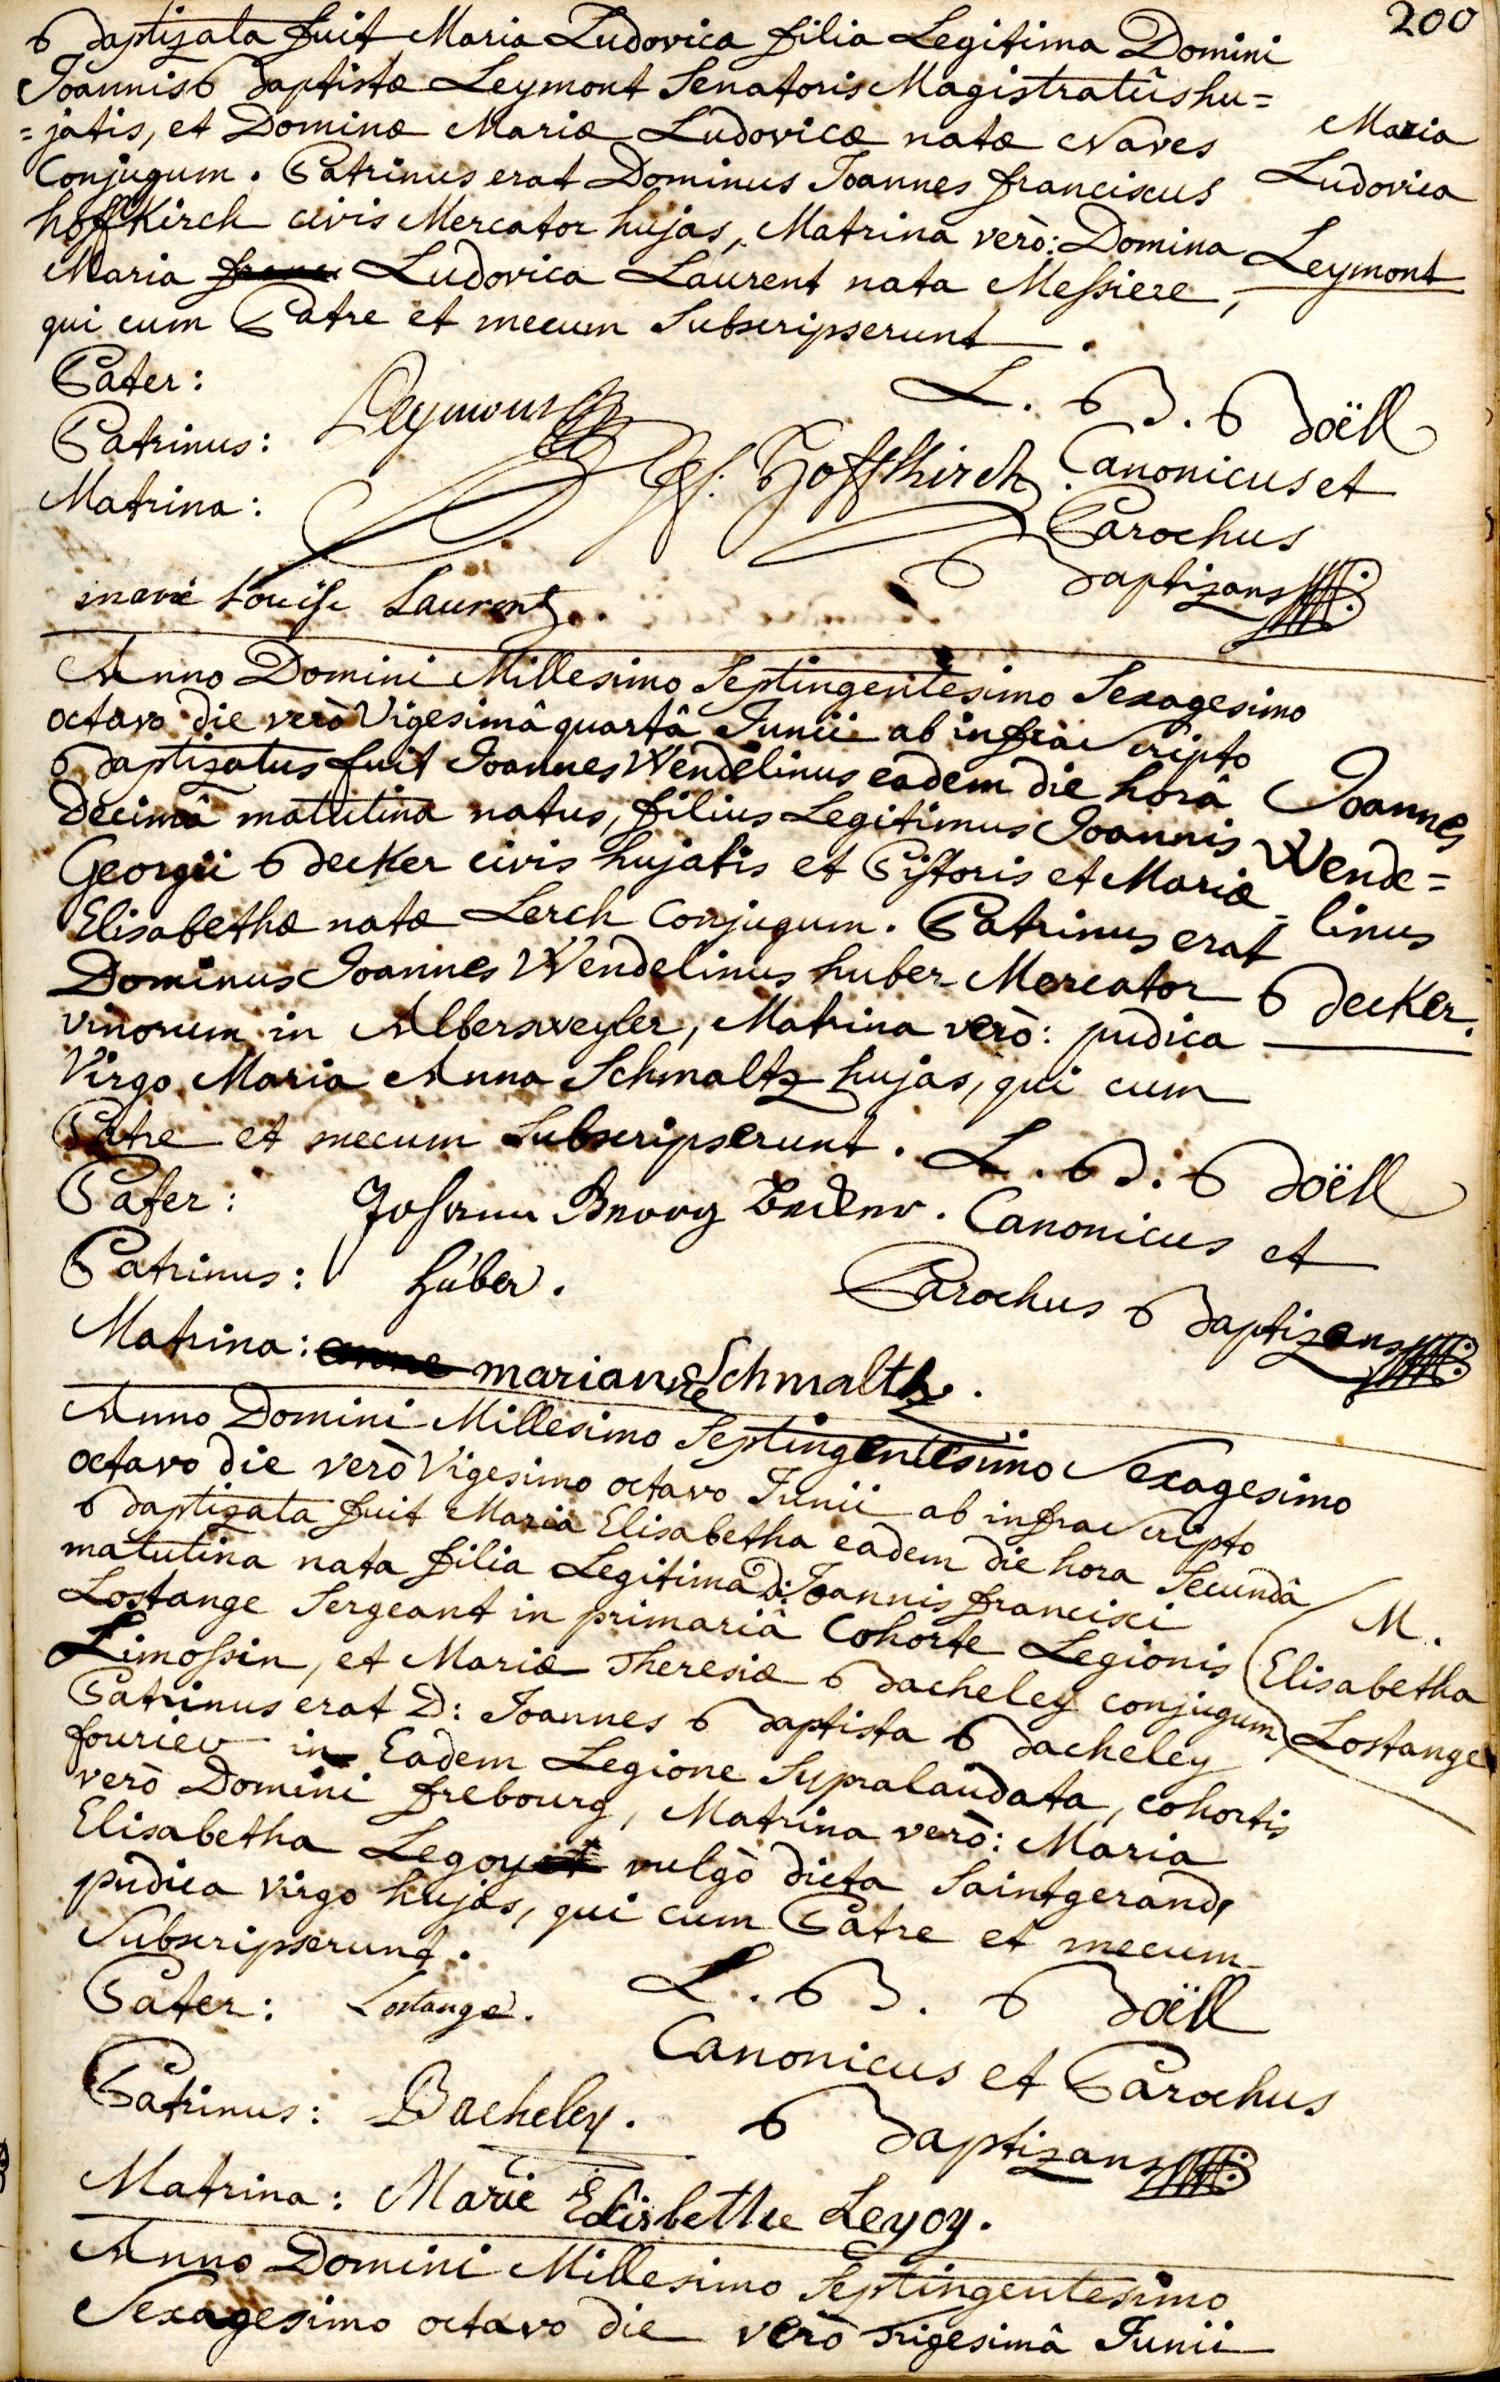 200
Baptizata fuit Maria Ludovica filia Legitima Domini
Joannis Baptistæ Leymont Senatoris Magistratûs hu=
=jatis, et Dominæ Mariæ Ludovicæ natæ Naves
Conjugum. Patrinus erat Dominus Joannes franciscus
hoffKirch civis Mercator hujas, Matrina verò: Domina
Maria Ludovica Laurent nata Messiere,
qui cum Patre et mecum Subscripserunt.
Maria
Ludovica
Leymont
Pater: Leymont
Patrinus: Hoffkirch
Matrina:
marie Louise Laurent..
L. B. Boëll
Canonicus et
Parochus
Baptizans
Anno Domini Millesimo Septingentesimo Sexagesimo
octavo die verò Vigesimâ quartâ Junii ab infra Scripto
Baptizatus fuit Joannes Wendelinus eadem die horâ
Decimâ matutina natus, filius Legitimus Joannis
Georgii Becker civis hujatis et Pistoris et Mariæ
Elisabethæ natæ Lerch Conjugum. Patrinus erat
Dominus Joannes Wendelinus huber Mercator
vinorum in Albersweyler, Matrina verò: pudica
Virgo Maria Anna Schmaltz hujas, qui cum
Patre et mecum Subscripserunt.
Joannes
Wende=
=linus
Becker.
L. B. Boëll
Canonicus et
Parochus Baptizans
Pater: Johann Georg Becker.
Patrinus: Huber.
Matrina: marianne Schmaltz.
Anno Domini Millesimo Septingentesimo Sexagesimo
octavo die verò Vigesimo octavo Junii ab infra Scripto
Baptizata fuit Maria Elisabetha eadem die hora Secundâ
matutina nata filia Legitima D: Joannis francisci
Lostange Sergeant in primariâ Cohorte Legionis
Limossin, et Mariæ Theresiæ Bacheley conjugum,
Patrinus erat D: Joannes Baptista Bacheley
fourier in Eadem Legione Supralaudata, cohortis
verò Domini frebourg, Matrina verò: Maria
Elisabetha Legoy vulgò dicta Saintgerand
pudica virgo hujas, qui cum Patre et mecum
Subscripserunt.
M.
Elisabetha
Lostange
Pater: Lostange.
Patrinus: Bacheley.
Matrina: Marie Elisbethe Legoy.
L. B. Boëll
Canonicus et Parochus
Baptizans
Anno Domini Millesimo Septingentesimo
Sexagesimo octavo die verò Trigesimâ Junii